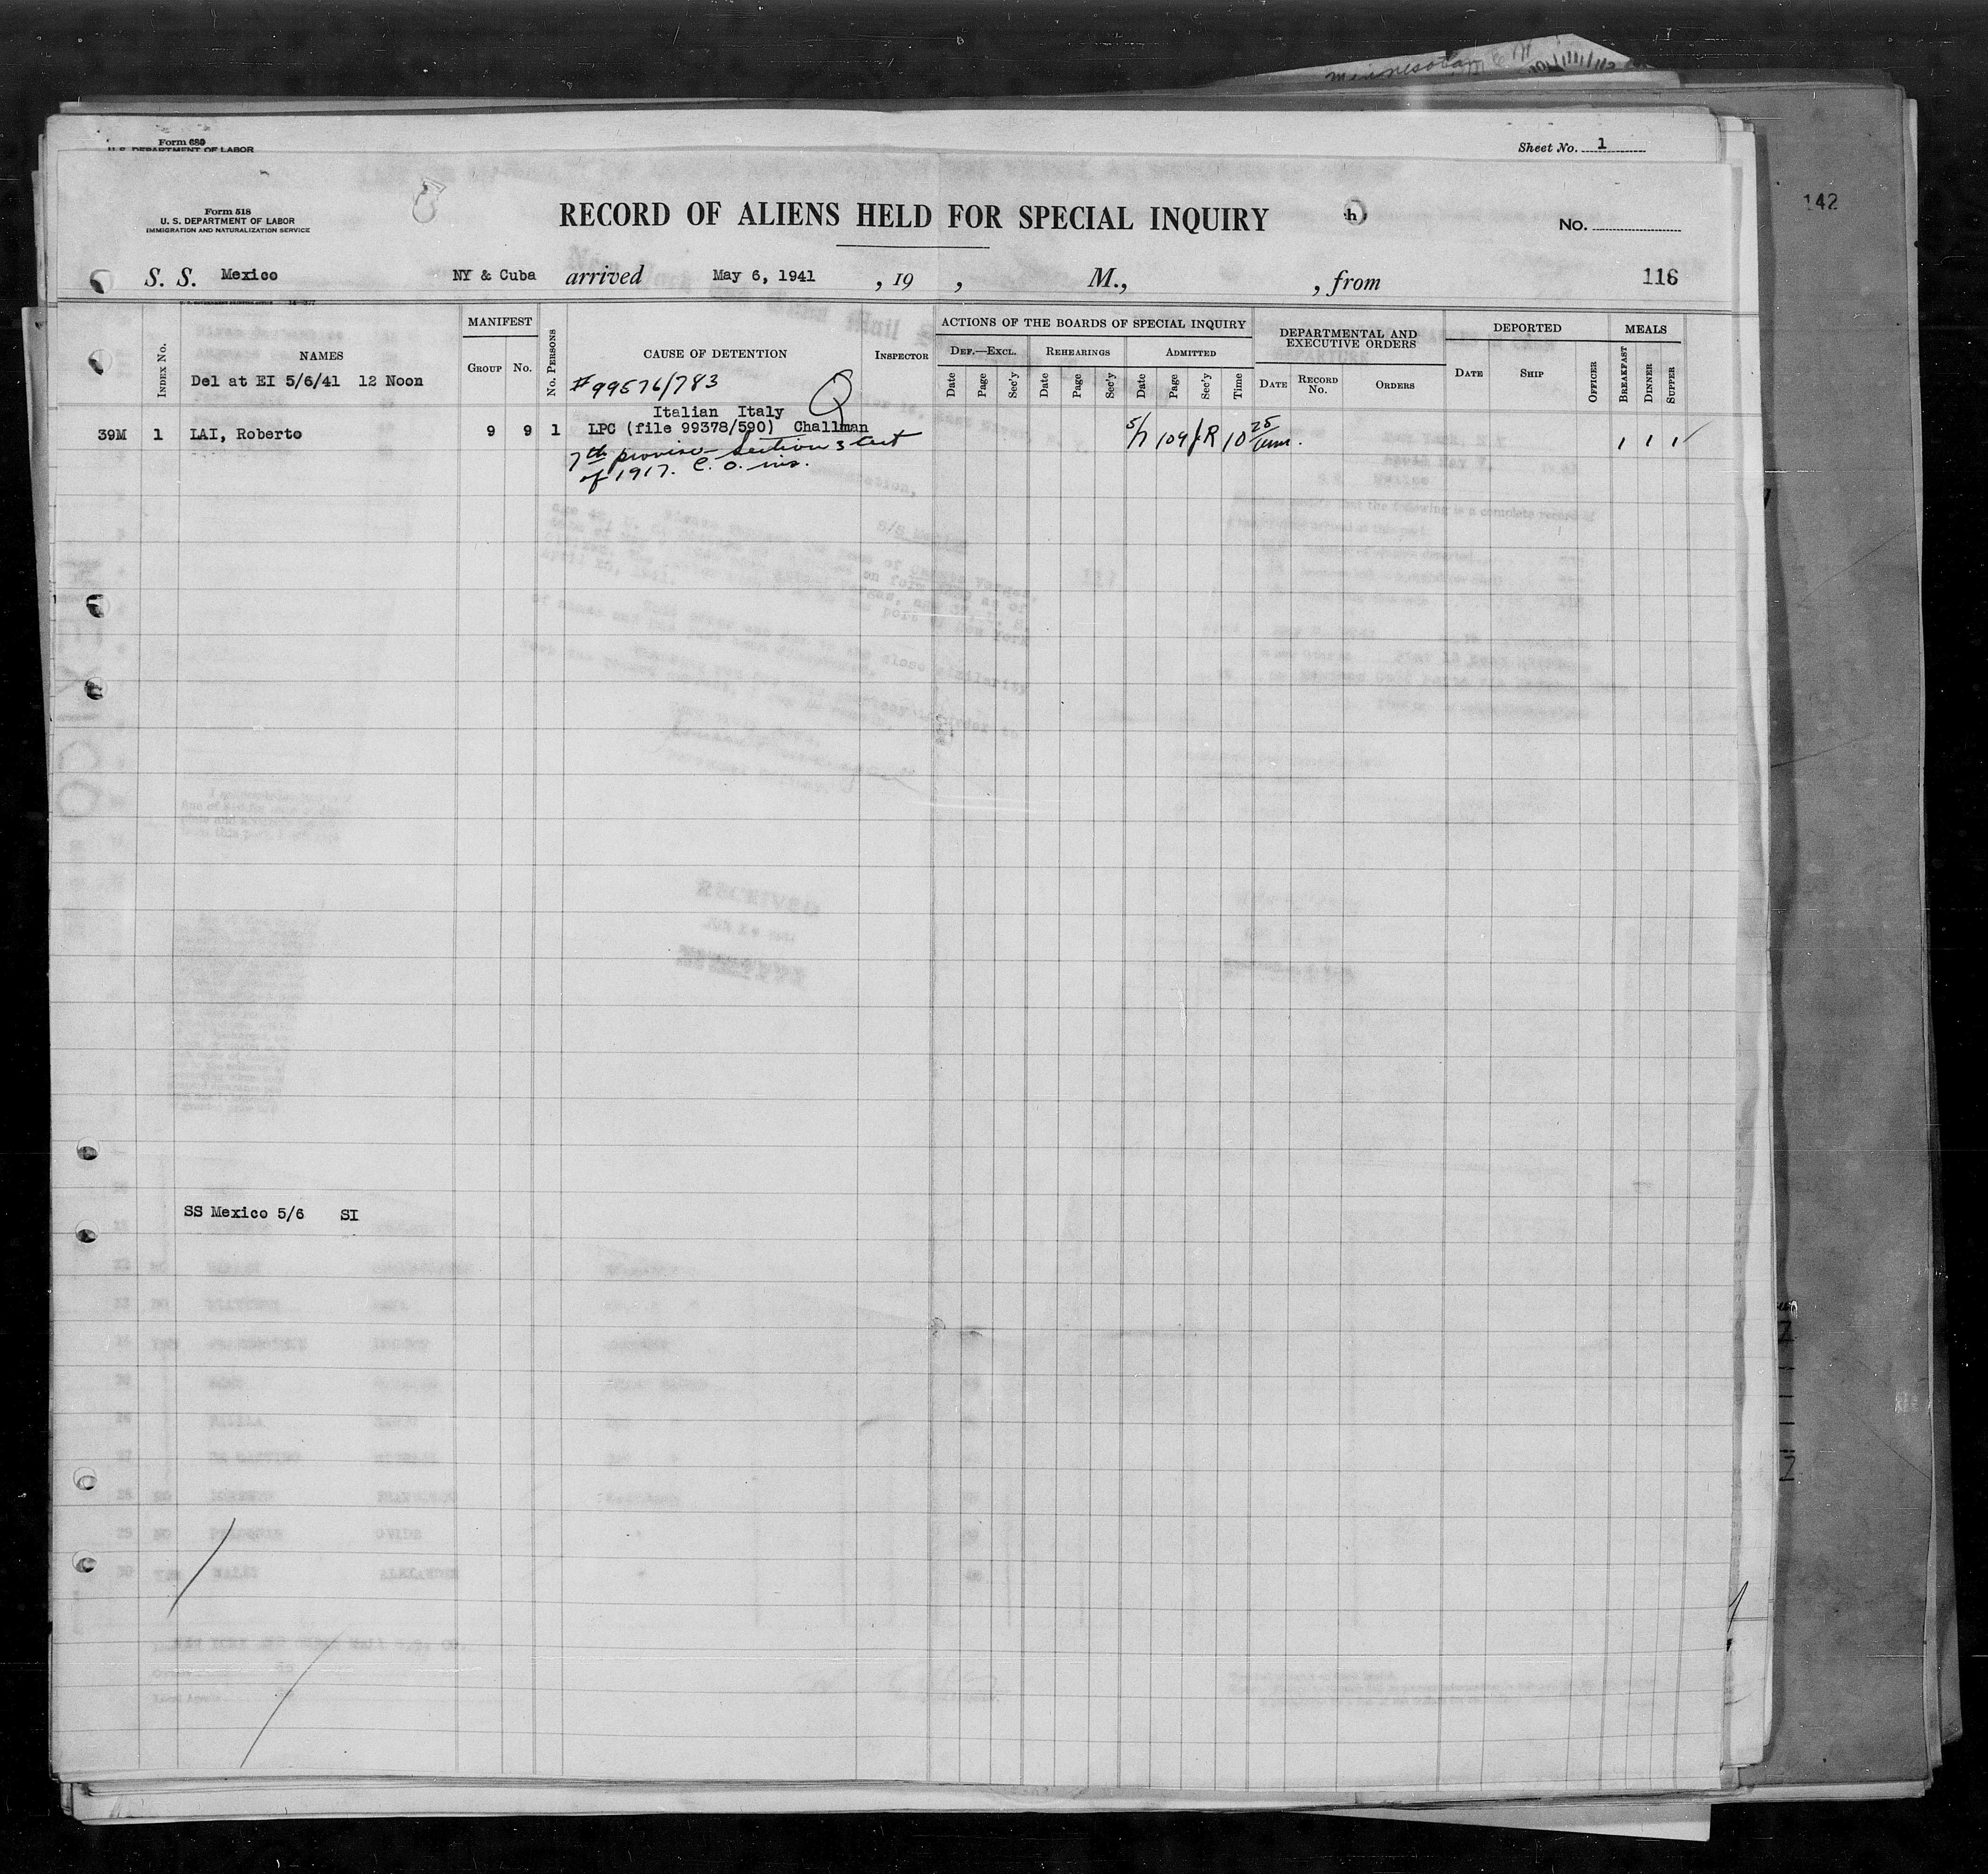 Form 680
U. S. DEPARTMENT OF LABOR
Sheet No. 1
142
Form 518
U. S. DEPARTMENT OF LABOR
IMMIGRATION AND NATURALIZATION SERVICE
RECORD OF ALIENS HELD FOR SPECIAL INQUIRY
No.
S. S. Mexico NY & Cuba arrived May 6, 1941 , 19 , M., , from 116
INDEX No. NAMES MANIFEST GROUP No. No. PERSONS CAUSE OF DETENTION INSPECTOR
ACTIONS OF THE BOARDS OF SPECIAL INQUIRY
DEF.—EXCL. REHEARINGS ADMITTED
Date Page Sec'y Date Page Sec'y Date Page Sec'y Time
DEPARTMENTAL AND EXECUTIVE ORDERS
DATE RECORD No. ORDERS
DEPORTED
DATE SHIP OFFICER
MEALS
BREAKFAST DINNER SUPPER
Del at EI 5/6/41 12 Noon #99576/783
Italian Italy
39M 1 LAI, Roberto 9 9 1 LPC (file 99378/590) Challman 5/7 109 R 10 25 1 1 1
7th proviso - Section 3 Act
of 1917. C. O. ins.
SS Mexico 5/6 SI